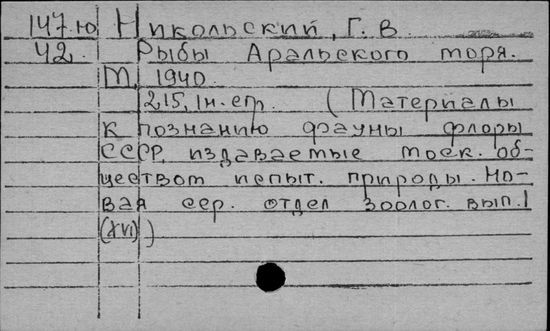 147ю Никольский, Г. В.
42. Рыбы Аральского моря.
М, 1940.
215, 1н. стр. (Материалы
к познанию фауны флоры
СССР, издаваемые моск. об-
ществом испыт. природы. Но-
вая сер. отдел зоолог. вып. 1
(XVI))